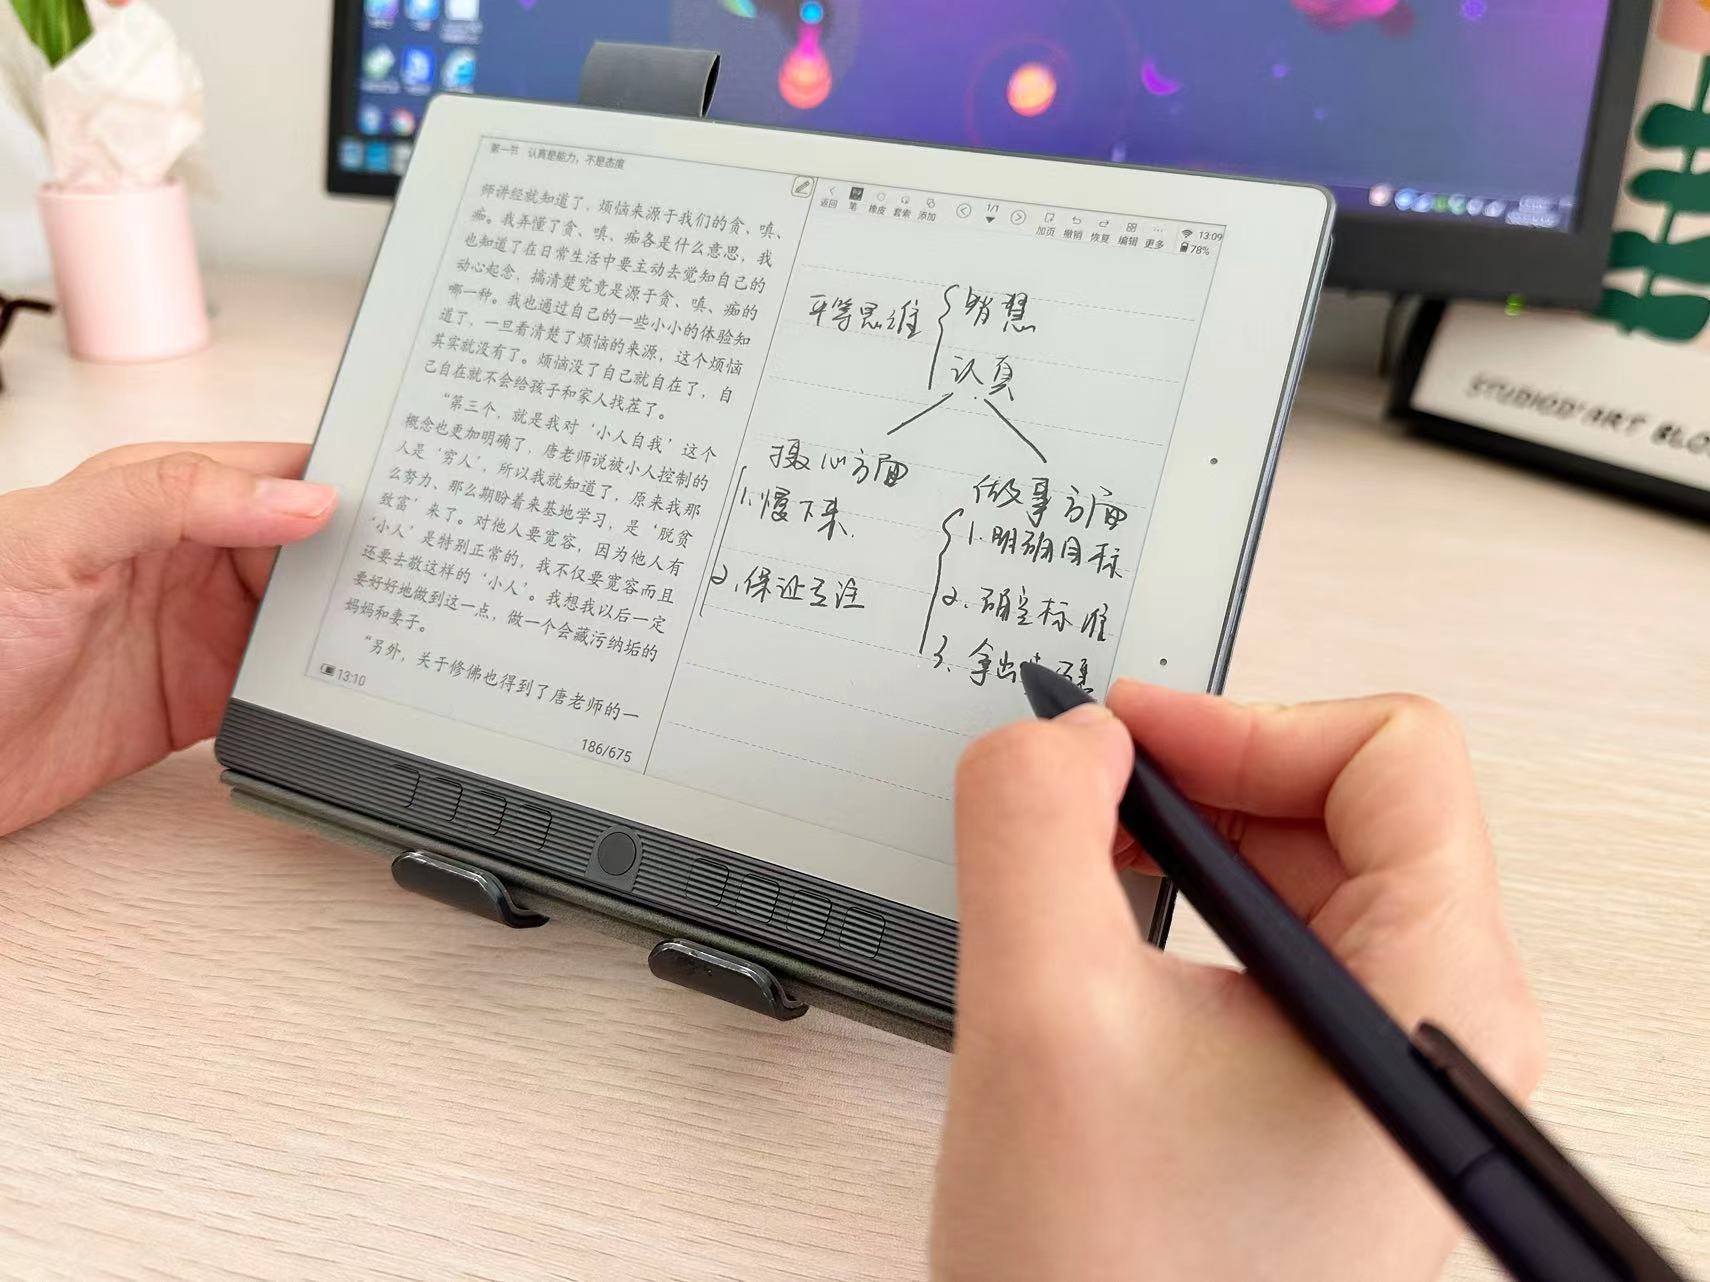 第一节 认真是能力，不是态度
师讲经就知道了，烦恼来源于我们的贪、嗔、
痴。我弄懂了贪、嗔、痴各是什么意思，我
也知道了在日常生活中要主动去觉知自己的
动心起念，搞清楚究竟是源于贪、嗔、痴的
哪一种。我也通过自己的一些小小的体验知
道了，一旦看清楚了烦恼的来源，这个烦恼
其实就没有了。烦恼没了自己就自在了，自
己自在就不会给孩子和家人找茬了。
“第三个，就是我对‘小人自我’这个
概念也更加明确了，唐老师说被小人控制的
人是‘穷人’，所以我就知道了，原来我那
么努力、那么期盼着来基地学习，是‘脱贫
致富’来了。对他人要宽容，因为他人有
‘小人’是特别正常的，我不仅要宽容而且
还要去敬这样的‘小人’。我想我以后一定
要好好地做到这一点，做一个会藏污纳垢的
妈妈和妻子。
“另外，关于修佛也得到了唐老师的一
13:10
186/675
返回 笔 橡皮 套索 添加 1/1 加页 撤销 恢复 编辑 更多
13:09
78%
平等思维
智慧
认真
摄心方面
1.慢下来.
2.保证专注
做事方面
1.明确目标
2.确定标准
3.拿出
STUDIOD'ART BLO